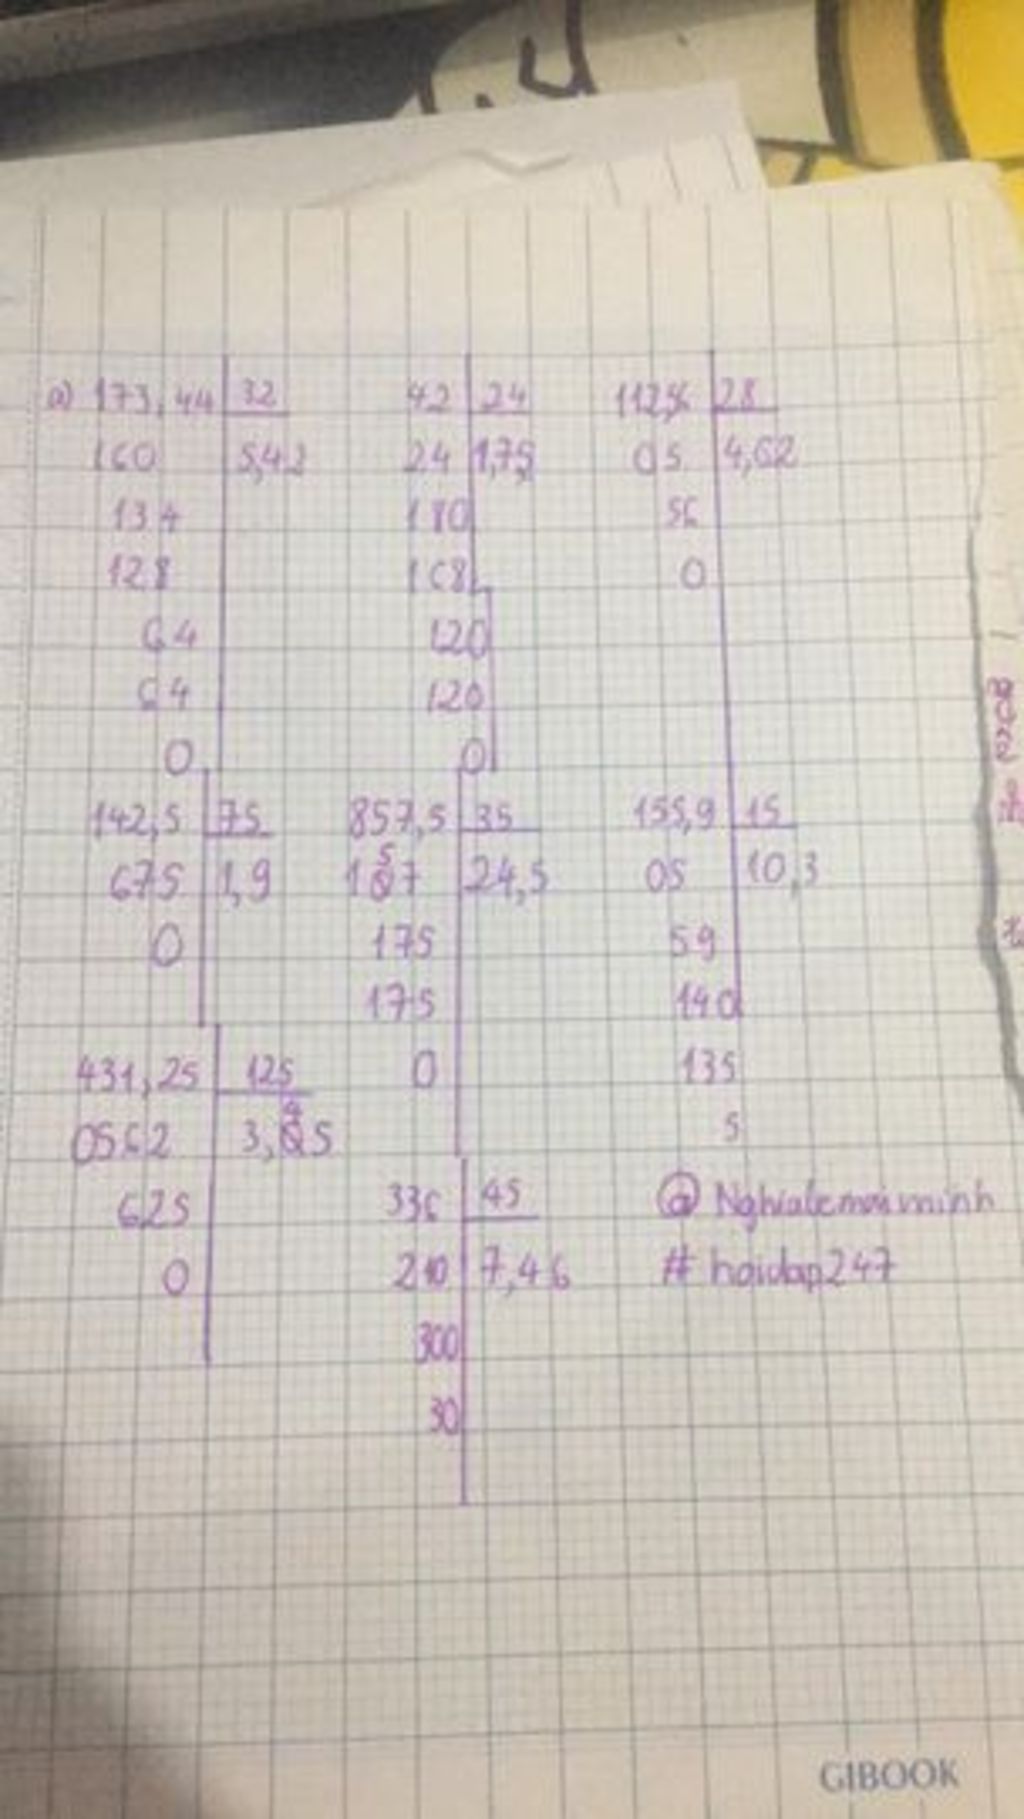 a) 173,44 32
160 5,42
134
128
64
64
0
42 24
24 1,75
180
168
120
120
0
112,56 28
05 4,02
56
0
142,5 75
675 1,9
0
857,5 35
157 24,5
175
175
0
155,9 15
05 10,3
59
140
135
5
431,25 125
0562 3,45
625
0
336 45
210 7,46
300
30
# hoidap247
GIBOOK